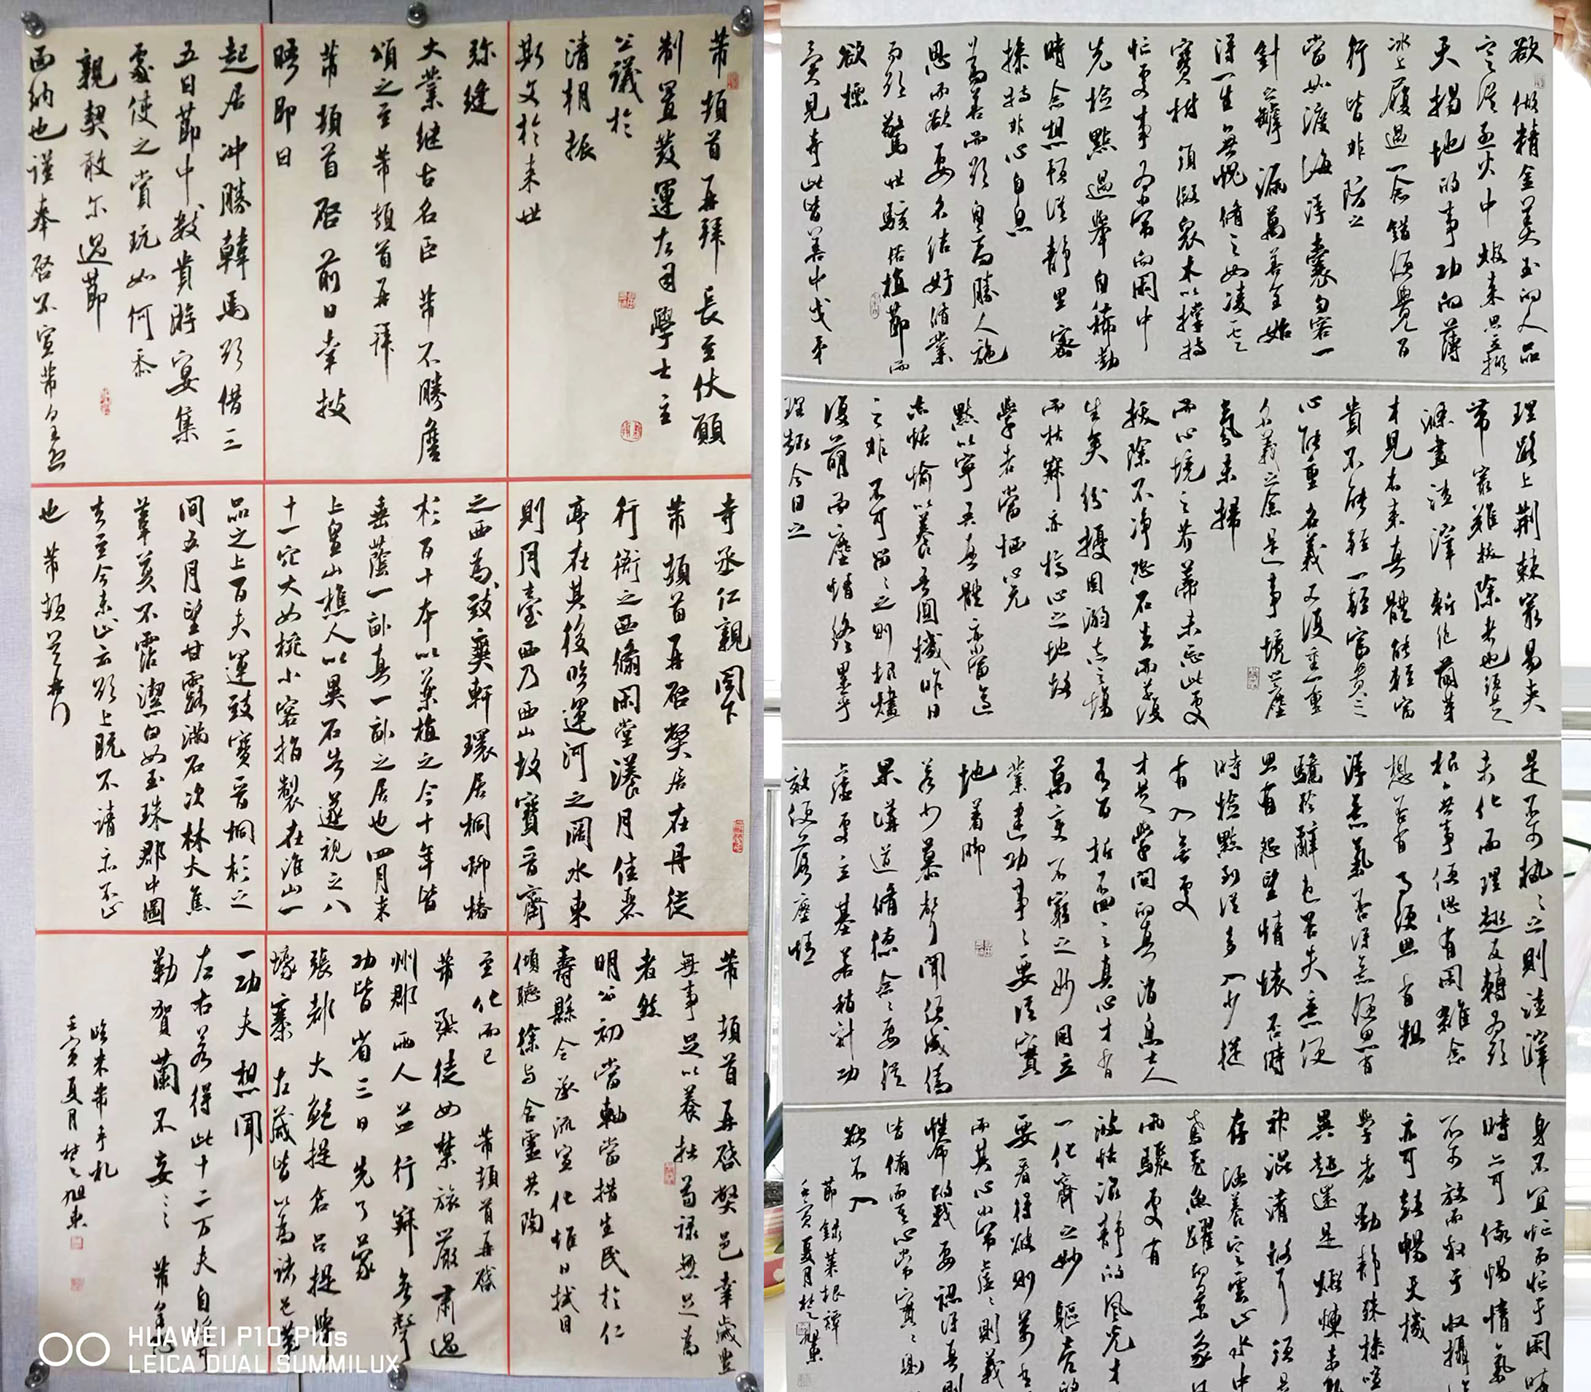 芾頓首再拜 長至伏願
制置發運左司學士主
公議於
清朝振
斯文於來世
弥縫
大業继古名臣 芾不勝詹
頌之至 芾頓首再拜
芾頓首啓 前日幸披
晤 即日
起居冲勝 韓馬欲借三
五日 節中數貴游宴集
處使之賞玩如何 忝
親契敢尔 過節
面納也 謹奉啓不宣 芾
寺丞仁親閣下
芾頓首再啓 弊居在丹徒
行衙之西 脩閑堂漾月佳麗
亭在其後 臨運河之闊水 東
則月臺 西乃西山 故寶晋齋
之西為致爽軒 環居桐柳椿
杉百十本 以藥植之 今十年皆
垂蔭 一卧真一卧之居也 四月末
上皇山樵人以異石告 遂視之 八
十一穴 大如椀 小容指 製在淮山一
品之上 百夫運致寶晋桐杉之
間 五月望 甘露滿石 次林木焦
葦莫不霑 潔白如玉珠 郡中圖
去 至今未止 云欲上 既不請 亦不止
也 芾頓首
芾頓首再啓 弊邑幸歲豐
無事 足以養拙苟禄 無足為
者 然
明公初當軸 當措生民於仁
壽 縣令承流宣化 惟日拭目
傾聽 徐與含靈共陶
至化而已 芾頓首再啓
芾 承徒如禁旅嚴肅 過
州郡 兩人並行 寂無聲
功皆省三日先了 蒙
張都大鮑提倉呂提舉
壕寨左藏皆以為諸邑第
一功夫 想聞
左右 若得此十二万夫自將 可
勒賀蘭 不妄不妄 芾皇恐
臨米芾手札
壬寅夏月
欲做精金美玉的人品
定從烈火中煅來 思立掀
天揭地的事功 向薄
冰上履過 一念錯 便覺百
行皆非 防之
當如渡海浮囊 勿容一
針之罅漏 萬善全 始
得一生無愧 脩之如凌雲
寶樹 須假衆木以撐持
忙處事為 常向閑中
先檢點 過舉自稀 動
時念想 預從靜里密
操持 非心自息
為善而欲自高勝人 施
恩而欲要名結好 脩業
而欲驚世駭俗 植節而
欲標
異見奇 此皆善中戈矛
理路上荆棘 最易夾
帶 最難拔除者也 須是
滌盡渣滓 斬絶萌芽
才見本來真體 能輕富
貴 不能輕一輕富貴之
心 能重名義 又復重一重
名義之念 是事境之塵
氛未掃
而心境之芥蒂未忘 此處
拔除不淨 恐石去而草復
生矣 紛擾固溺志之場
而枯寂亦槁心之地 故
學者當栖心元
默 以寧吾真體 亦當適
志恬愉 以養吾圓機 昨日
之非不可留 留之則根燼
復萌 而塵情終累乎
理趣 今日之
是不可執 執之則渣滓
未化 而理趣反轉為欲
根 無事便思有閑雜念
想否 有事便思有粗
浮意氣否 得意便思有
驕矜辭色否 失意便
思有怨望情懷否 時
時檢點 到得從多入少 從
有入無處
才是學問的真消息 士人
有百折不回之真心 才有
萬變不窮之妙用 立
業建功 事事要從實
地着脚
若少慕聲聞 便成僞
果 講道脩德 念念要從
虛處立基 若稍計功
效 便落塵情
身不宜忙 而忙于閑暇
時 亦可儆惕惰氣 心
不可放 而放于收攝後
亦可鼓暢天機
學者動靜殊操 喧寂
異趣 還是煅煉未熟
神混淆故耳 須是
存涵養 定雲止水中
鳶飛魚躍的景象
雨驟處有
波恬浪靜的風光 才
一化齊之妙 軀壳的
要看得破 則萬
而其心常虛 虛則義
性命的我要認得真 則
皆備而其心常實 實則
欲不入
節録菜根譚
壬寅夏月
HUAWEI P10 Plus
LEICA DUAL SUMMILUX